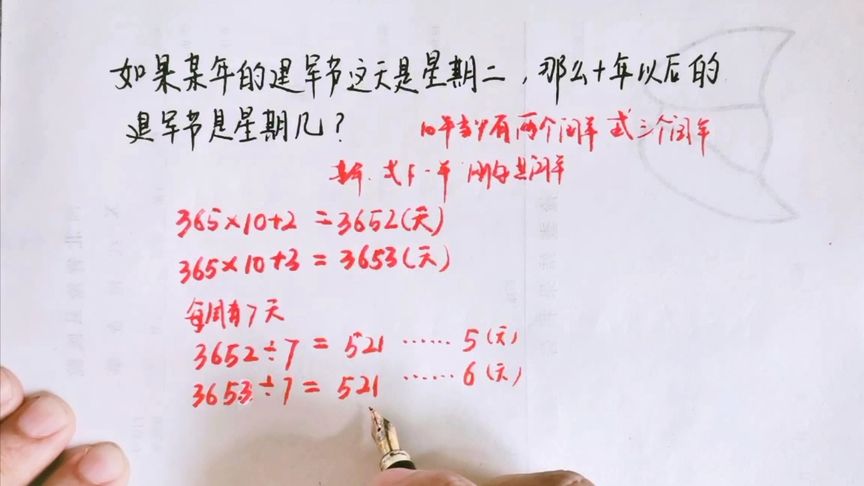 如果某年的建军节这天是星期二，那么十年以后的
建军节是星期几？
10年当中有两个闰年或三个闰年
365×10+2=3652(天)
365×10+3=3653(天)
每周有7天
3652÷7=521……5(天)
3653÷7=521……6(天)